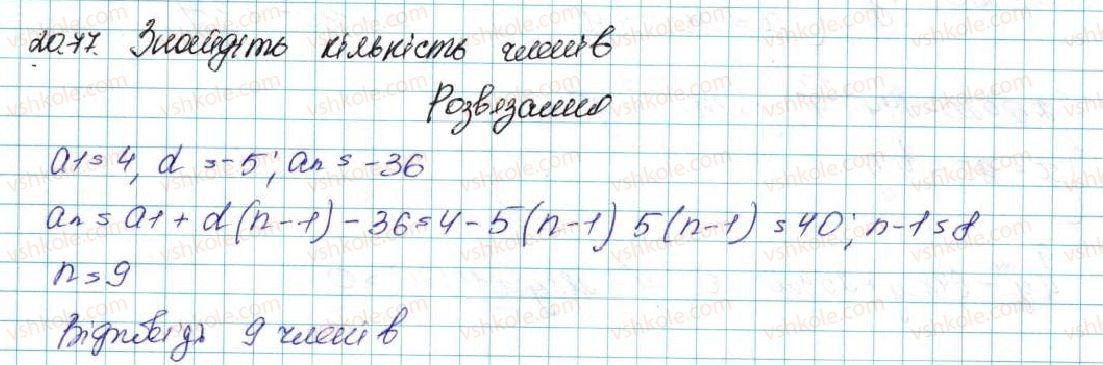 20.17. Знайдіть кількість членів
Розв'язання
a1 = 4, d = -5; an = -36
an = a1 + d(n-1) -36 = 4 - 5(n-1) 5(n-1) = 40; n-1 = 8
n = 9
Відповідь 9 членів